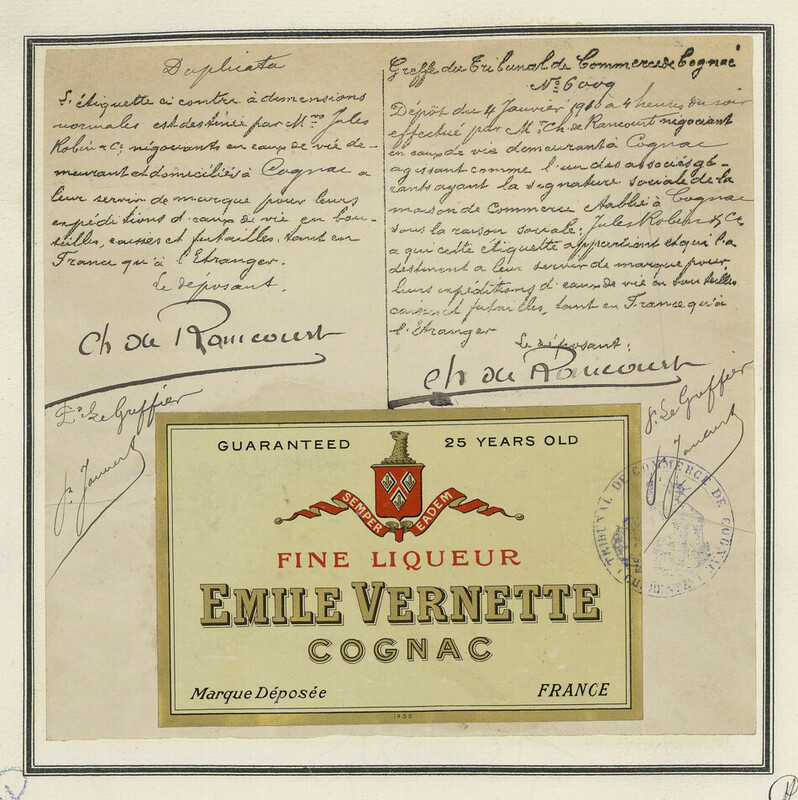 Duplicata
L'étiquette ci contre à dimensions
normales est destinée par Mrs Jules
Robin & Ce négociants en eaux de vie de-
meurant et domiciliés à Cognac a
leur servir de marque pour leurs
expéditions d'eaux de vie en bou-
teilles, caisses et futailles, tant en
France qu'à l'Etranger.
Le déposant,
Ch de Rancourt
Pr Le Greffier
Greffe du Tribunal de Commerce de Cognac
No 6009
Dépôt du 4 Janvier 19 à 4 heures du soir
effectué par Mr Ch. de Rancourt négociant
en eaux de vie demeurant à Cognac
agissant comme l'un des associés gé-
rants ayant la signature sociale de la
maison de Commerce établie à Cognac
sous la raison sociale: Jules Robin & Ce
a qui cette étiquette appartient et qui l'a
destinent a leur servir de marque pour
leurs expéditions d'eaux de vie en bouteilles
caisses et futailles, tant en France qu'à
l'Etranger
Le déposant:
Ch de Rancourt
Pr Le Greffier
TRIBUNAL DE COMMERCE DE COGNAC
GUARANTEED 25 YEARS OLD
SEMPER EADEM
FINE LIQUEUR
EMILE VERNETTE
COGNAC
Marque Déposée FRANCE
1455